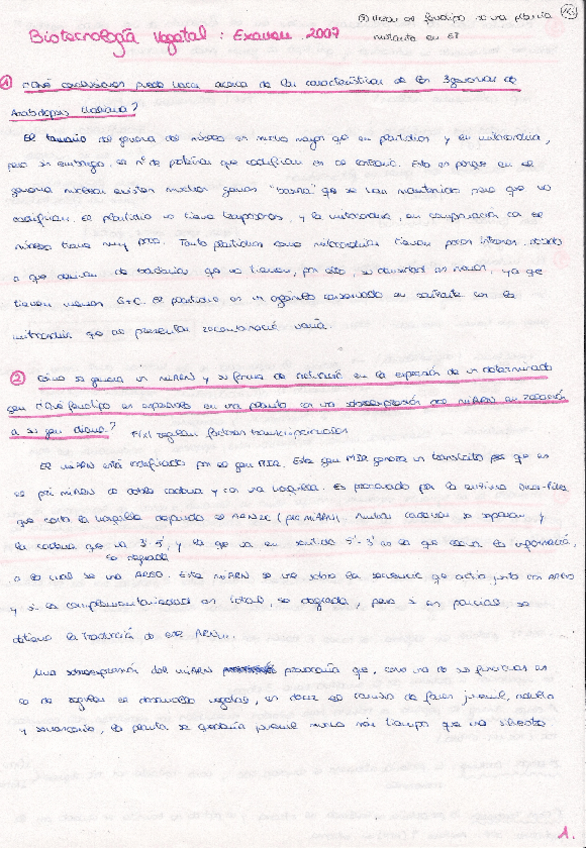 Biotecnología Vegetal: Examen 2007
1 ¿Qué conclusiones puedo sacar acerca de las características de los 3 genomas de
Arabidopsis thaliana?
El tamaño del genoma del núcleo es mucho mayor que en plastidios y en mitocondria,
pero sin embargo, el nº de proteínas que codifican es al contrario. Esto es porque en el
genoma nuclear existen muchos genes "basura" que se han mantenido pero que no
codifican. El plastidio no tiene transposones, y la mitocondria, en comparación con el
núcleo tiene muy pocos. Tanto plastidios como mitocondrias tienen pocos intrones debido
a que derivan de bacterias que no tienen, por ello, su densidad es menor, ya que
tienen menos G+C. El plastidio es un orgánulo conservado en
mitocondria que
2 Cómo se genera un miARN y su forma de actuación en la expresión de un determinado
gen ¿Qué fenotipo es esperado en una planta con una sobreexpresión del miARN en relación
a su gen diana?
El miARN está codificado por el gen MIR. Este gen MIR genera un transcrito que es
el pri miARN de doble cadena y con una horquilla. Es procesado por la enzima Dicer-like
que corta la horquilla dejando el (pre miARN). Ambas cadenas se separan y
la cadena que va 3'-5', se degrada y la que va en sentido 5'-3' es la que lleva la información,
a la cual se une AGO. Este miARN se une sobre la secuencia que actúa junto con AGO
y si la complementariedad es total, se degrada, pero si es parcial se
detiene la traducción de ese ARNm.
Una sobreexpresión del miARN provocaría que, como una de sus funciones es
la de regular el desarrollo vegetal, es decir el cambio de fases juvenil, adulta
y senescencia, la planta se quedaría juvenil mucho más tiempo que una silvestre
1.